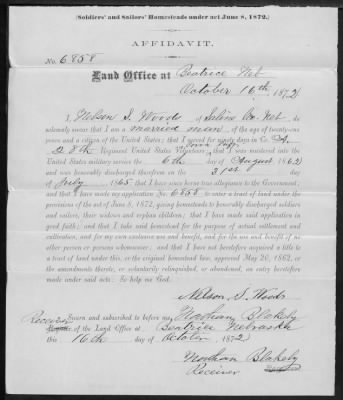 (Soldiers' and Sailors' Homesteads under act June 8, 1872.)
AFFIDAVIT.
No. 6858
Land Office at Beatrice Neb
October 16th, 1872
I, Nelson S. Woods, of Saline Co. Neb, do
solemnly swear that I am a married man, of the age of twenty-one
years and a citizen of the United States; that I served for ninety days in Co.
28th Regiment United States Volunteers; that I was mustered into the
United States military service the 6th day of August, 1862
and was honorably discharged therefrom on the 21st day
of July, 1865 that I have since borne true allegiance to the Government;
and that I have made my application No. 6858 to enter a tract of land under the
provisions of the act of June 8, 1872, giving homesteads to honorably discharged soldiers
and sailors, their widows and orphan children; that I have made said application in
good faith; and that I take said homestead for the purpose of actual settlement and
cultivation, and for my own exclusive use and benefit, and for the use and benefit of no
other person or persons whomsoever; and that I have not heretofore acquired a title to
a tract of land under this, or the original homestead law, approved May 20, 1862, or
the amendments thereto, or voluntarily relinquished, or abandoned, an entry heretofore
made under said acts: So help me God.
Nelson S. Woods
Sworn and subscribed to before me, Nathan Blakely
Receiver of the Land Office at Beatrice Nebraska
this 16th day of October, 1872
Nathan Blakely
Receiver